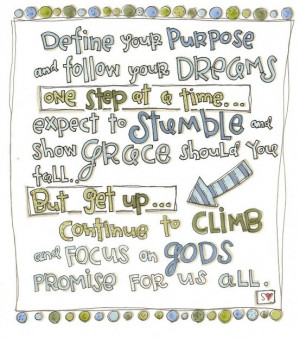 Define your PURPOSE
and follow your DREAMS
one STEP at a time...
expect to STUMBLE and
show GRACE should you
fall..
But get up...
Continue to CLIMB
and FOCUS on GODS
PROMISE FOR us all.
S